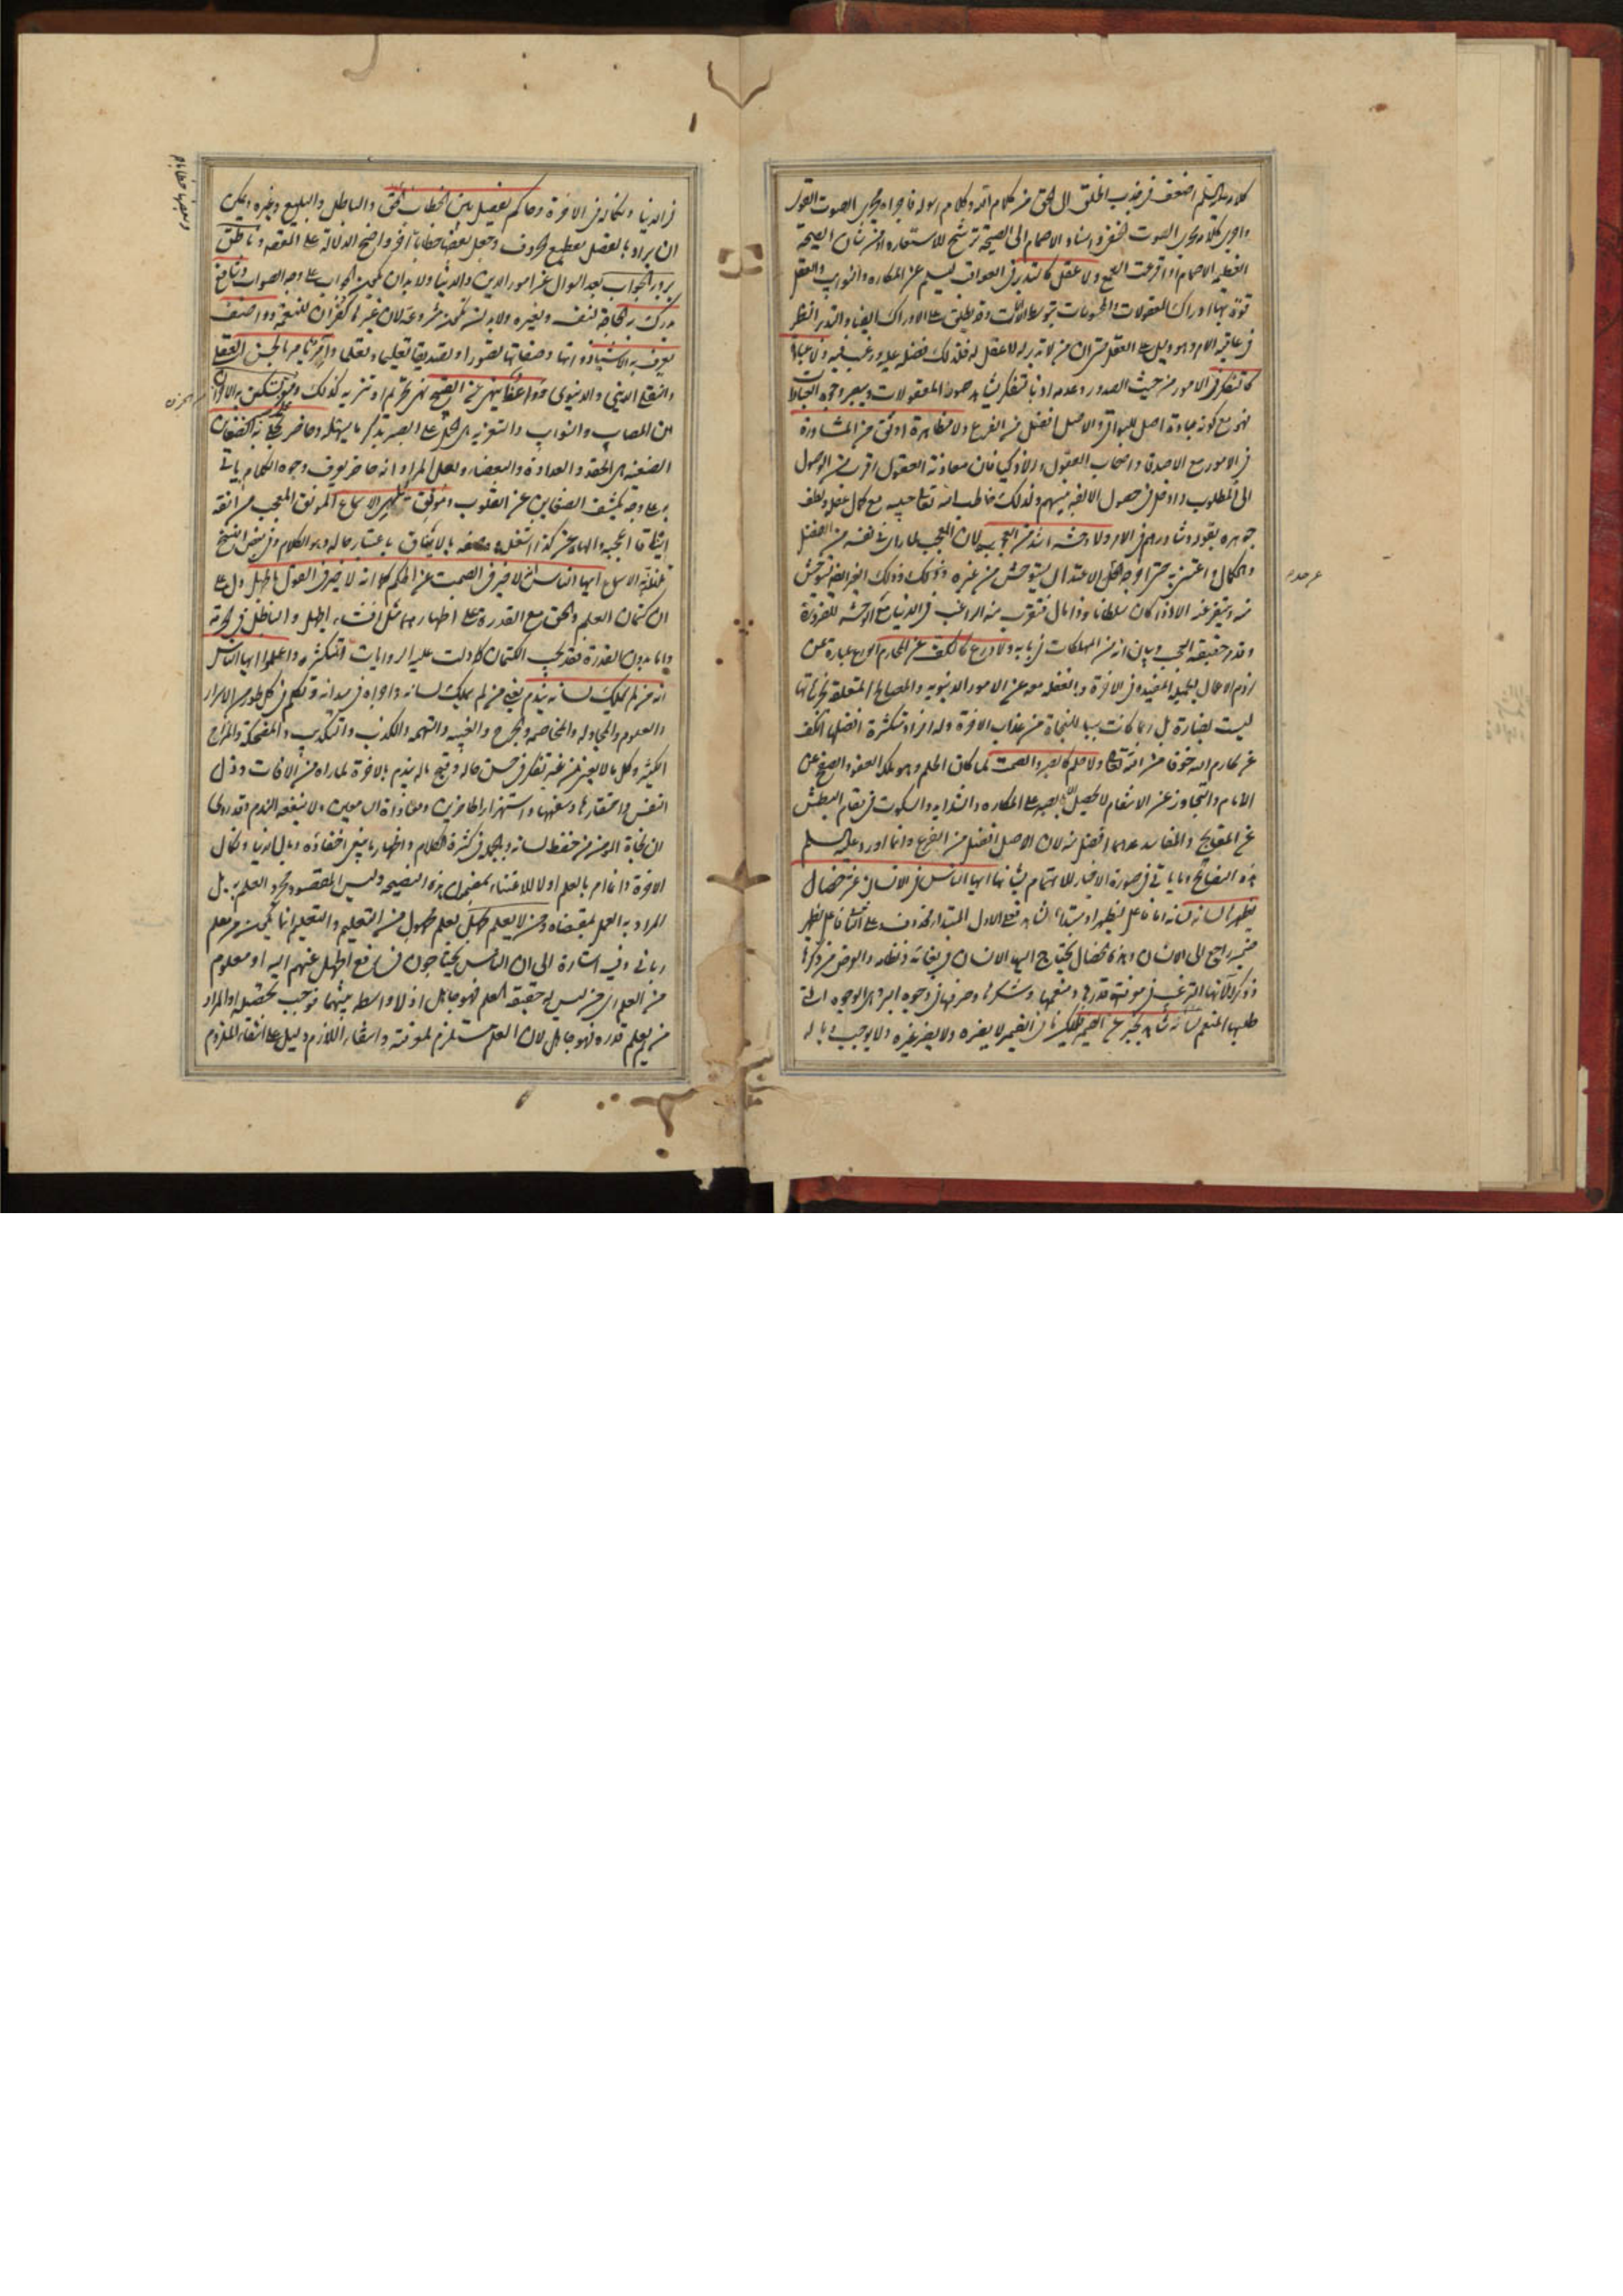 كلامه عليه السلم اضعف في جذب الخلق الى الحق من كلام الله وكلام رسوله فاجراه مجرى الصوت القول
واجرى كلامه مجرى الصوت الخفي واسناد الاصمام الى الصيحة ترشيح للاستعارة اذ من شان الصيحة
العظيمة الاصمام اذا قرعت السمع ولا عقل كالتدبر في العواقب ليسلم عن المكاره والنوايب والعقل
قوة بها ادراك المعقولات والمحسوسات بتوسط الالات وقد يطلق على الادراك ايضا والتدبر النظر
في عاقبة الامر وهو دليل على العقل حتى ان من لا تدبر له لا عقل له فلذلك فضله عليه ورغب فيه ولا عبادة
كالتفكر في الامور من حيث الصدور وعدمه اذ بالتفكر يشاهد صور المعقولات ويبصر وجوه العبادات
فهو مع كونه عبادة اصل للبواقي والاصل افضل من الفرع ولا مظاهرة اوثق من المشاورة
في الامور مع الاصدقاء واصحاب العقول والاذكيا فان معاونة العقول اقرب من الوصول
الى المطلوب وادخل في حصول الالفة بينهم ولذلك خاطب الله تعالى حبيبه مع كمال عقله ولطف
جوهره بقوله وشاورهم في الامر ولا وحشة اشد من العجب لان المعجب لما راى نفسه من الفضل
والكمال واعتنى به حتى اخرجه عن الاعتدال يستوحش من غيره وذلك الغير ايضا يستوحش
منه ويتنفر عنه الا اذا كان سلطانا وذا مال فيتقرب منه الراغب في الدنيا مع الوحشة للضرورة
وقد مر حقيقة العجب وبيان انه من المهلكات في بابه ولا ورع كالكف عن المحارم الورع عبارة عن
لزوم الاعمال الجميلة المفيدة في الاخرة والغفلة معه عن الامور الدنيوية والمصالح المتعلقة بجزئياتها
ليست بضارة بل ربما كانت سببا للنجاة من عذاب الاخرة وله افراد متكثرة افضلها الكف
عن محارم الله خوفا من الله تعالى ولا حلم كالصبر والصمت لما كان الحلم وهو ملكة العفو والصفح عن
الانام والتجاوز عن الانتقام لا يحصل الا بالصبر على المكاره والشدايد والسكوت في مقام البطش
عن المقابح والمفاسد عدهما افضل منه لان الاصل افضل من الفرع وانما اورد عليه السلم
هذه النصايح وما ياتي في صورة الاخبار للاهتمام بشانها ايها الناس في الانسان عشر خصال
يظهرها لسانه لسانه اما فاعل ليظهرها او مبتدا
ضمير راجع الى الانسان وهذه الخصال يحتاج اليها الانسان في بقائه ونظامه والغرض من ذكرها
وذكر كمالاتها الترغيب في معرفة قدرها ومنعمها وشكرها وصرفها في وجوه البر هي الوجوه التي
طلبها المنعم لسانه شاهد يخبر عن الضمير فليكن ما في الضمير لا يضره ولا يضر غيره ولا يوجب وباله
في الدنيا ونكاله في الاخرة وحاكم يفصل بين الخطاب الحق والباطل والبليغ وغيره ويمكن
ان يراد بالفصل تقطيع الحروف وجعل بعضها خطابا اخر واضح الدلالة على المقصود وناطق
يرد به الجواب بعد السوال عن امور الدين والدنيا ولا بد ان يكون الجواب على وجه الصواب وشافع
يدرك به الحاجة لنفسه ولغيره ولا بد ان تكون مشروعة لان غيرها كفران للنعمة وواصف
يعرف به الاشياء ذواتها وصفاتها تصورا وتصديقا تعليما وتعلما وامر يامر بالحسن العقلي
والنفع الديني والدنيوي وواعظ ينهى عن القبيح نهي تحريم او تنزيه كذلك ومعز تسكن به الاحزان
من المصاب والنوايب والتعزية هي الحمل على الصبر بذكر ما يسهله وحاضر تجلى به الضغاين
الضغينة هي الحقد والعداوة والبغضاء ولعل المراد انه حاضر يعرف وجوه الكلام ياتي
به على وجه يكشف الضغاين عن القلوب ومونق تلتذ به الاسماع المونق المعجب من انقه
ايناقا اعجبه
ايها الناس انه لا خير في الصمت عن الحكم كما انه لا خير في القول بالجهل دل على
ان كتمان العلم والحق مع القدرة على اظهارهما مثل افشاء الجهل والباطل في الحرمة
واما بدون القدرة فقد يجب الكتمان كما دلت عليه الروايات المتكثرة واعلموا ايها الناس
انه من لم يملك لسانه يندم يعني من لم يملك لسانه واجراه في ميدانه وتكلم في كل طور من الاسرار
والعلوم والمجادلة والمخاصمة والجرح والغيبة والتهمة والكذب والتكذيب والمضحكة والمزاح
الكثير وكل ما لا يعني من غير تفكر في حسن ماله وقبح ماله يندم بالاخرة لما راه من الافات وذل
النفس واحتقارها وسفهها واستهزاء الحاضرين ومعاداة السامعين ولا ينفعه الندم وقد روي
ان نجاة المومن من حفظ لسانه وبالجملة في كثرة الكلام واظهار ما ينبغي اخفاؤه وبال الدنيا ونكال
الاخرة وانما امر بالعلم اولا للاعتناء بمضمون هذه النصيحة وليس المقصود مجرد العلم به بل
المراد به العمل بمقتضاه ومن لا يعلم يجهل يعلم مجهول من التعليم والتعليم انما يكون من معلم
رباني وفيه اشارة الى ان الناس يحتاجون في رفع الجهل عنهم اليه او معلوم
من العلم اي من ليس له حقيقة العلم فهو جاهل اذ لا واسطة بينهما فوجب تحصيله او المراد
من لم يعلم قدره فهو جاهل لان العلم مستلزم لمعرفته وانتفاء اللازم دليل على انتفاء الملزوم